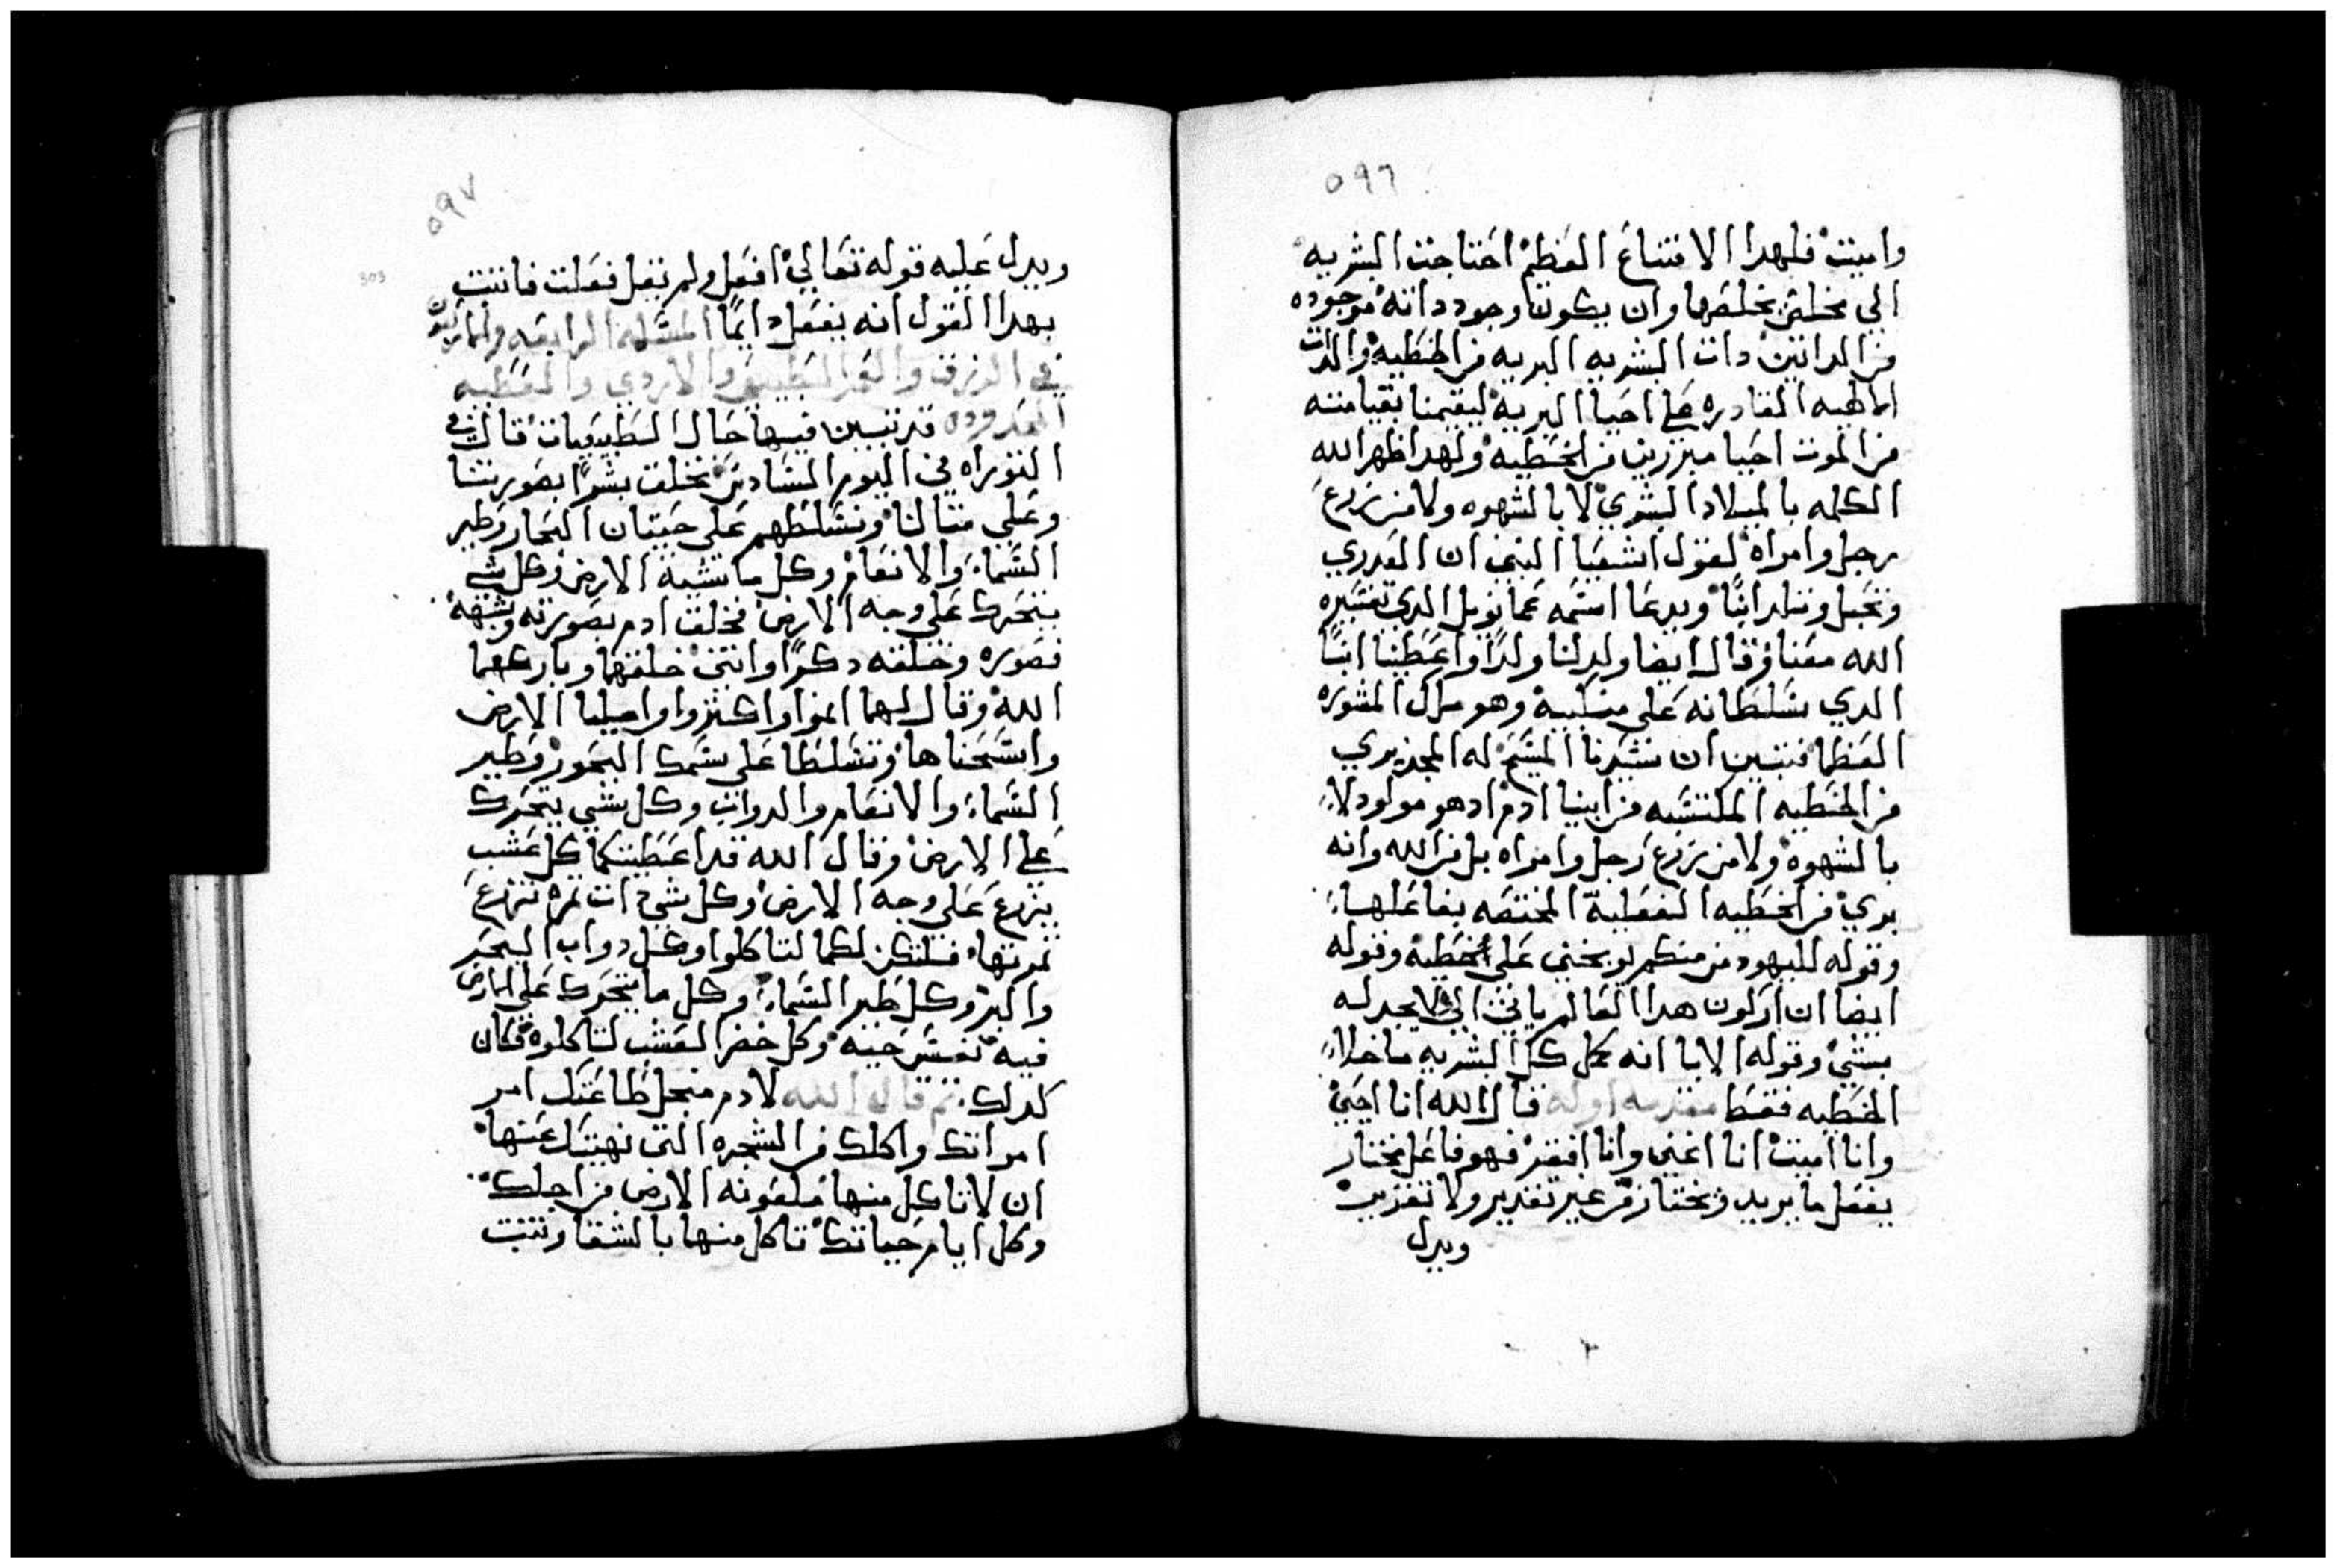 ٥٩٦
واميت فلهدا الامتناع العظم احتاجت البشريه
الي مخلص يخلصها وان يكون وجود داته موجوده
من الداتين دات البشريه البريه من الخطيه والدات
الالهيه القادره على احيا البريه ليقيمنا بقيامته
من الموت احيا مبررين من الخطيه ولهدا ظهر الله
الكلمه بالميلاد البشري لا بالشهوه ولا من زرع
رجل وامراه لقول اشعيا النبي ان العدري
تحبل وتلد ابنًا ويدعا اسمه عمانويل الدي تفسيره
الله معنا وقال ايضا ولد لنا ولدًا واعطينا ابنًا
الدي سلطانه على منكبيه وهو ملاك المشوره
العظما فتبين ان سيدنا المسيح له المجد بري
من الخطيه المكتسبه من ابينا ادم ادهو مولود لا
بالشهوه ولا من زرع رجل وامراه بل من الله وانه
بري من الخطيه الفعلية المختصه بفاعلها
وقوله لليهود من منكم يوبخني على خطيه وقوله
ايضا ان اركون هدا العالم ياتي الي ولا يجد له
شي وقوله الابا انه كمل كل البشريه ماخلا
الخطيه فقط مقدمه اوله قال الله انا احيي
وانا اميت انا اغني وانا افقر فهو فاعل مختار
يفعل ما يريد ويختار من غير تقدير ولا تقديب
ويدل
٥٩٧
303
ويدل عليه قوله تعالي افعل ولم يقل فعلت فاتت
بهدا القول انه يفعل دايمًا المسله الرابعه
في الرزق والعمر الطبيعي والاردي والعظيه
المعدوده قد تبين فيها حال الطبيعيات قال في
التوراه في اليوم السادس نخلق بشرًا بصورتنا
وعلي مثالنا ونسلطهم على حيتان البحار وطير
السماء والانعام وكل ما تشبه الارض وكل شي
يتحرك على وجه الارض فخلق ادم بصورته وشبهه
فصوره وخلقه دكرًا وانثى خلقهما وباركهما
الله وقال لهما انموا واكثروا واميليا الارض
واسمحناها وتسلطا على سمك البحور وطير
السماء والانعام والدواب وكل شي يتحرك
على الارض وقال الله قد اعطيتكما كل عشب
يزرع على وجه الارض وكل شي دات ثمره تزرع
ثمرتها فلتكن لكما لتاكلوا وكل دواب البحر
والبر وكل طير السماء وكل ما يتحرك على الارض
فيه نفس حيه وكل خضر العشب لتاكلوه فكان
كدلك ثم قال الله لادم منجل طاعتك امر
امراتك واكلك من الشجره التي نهيتك عنها
ان لا تاكل منها ملعونه الارض من اجلك
وكل ايام حياتك تاكل منها بالشقا وتنبت